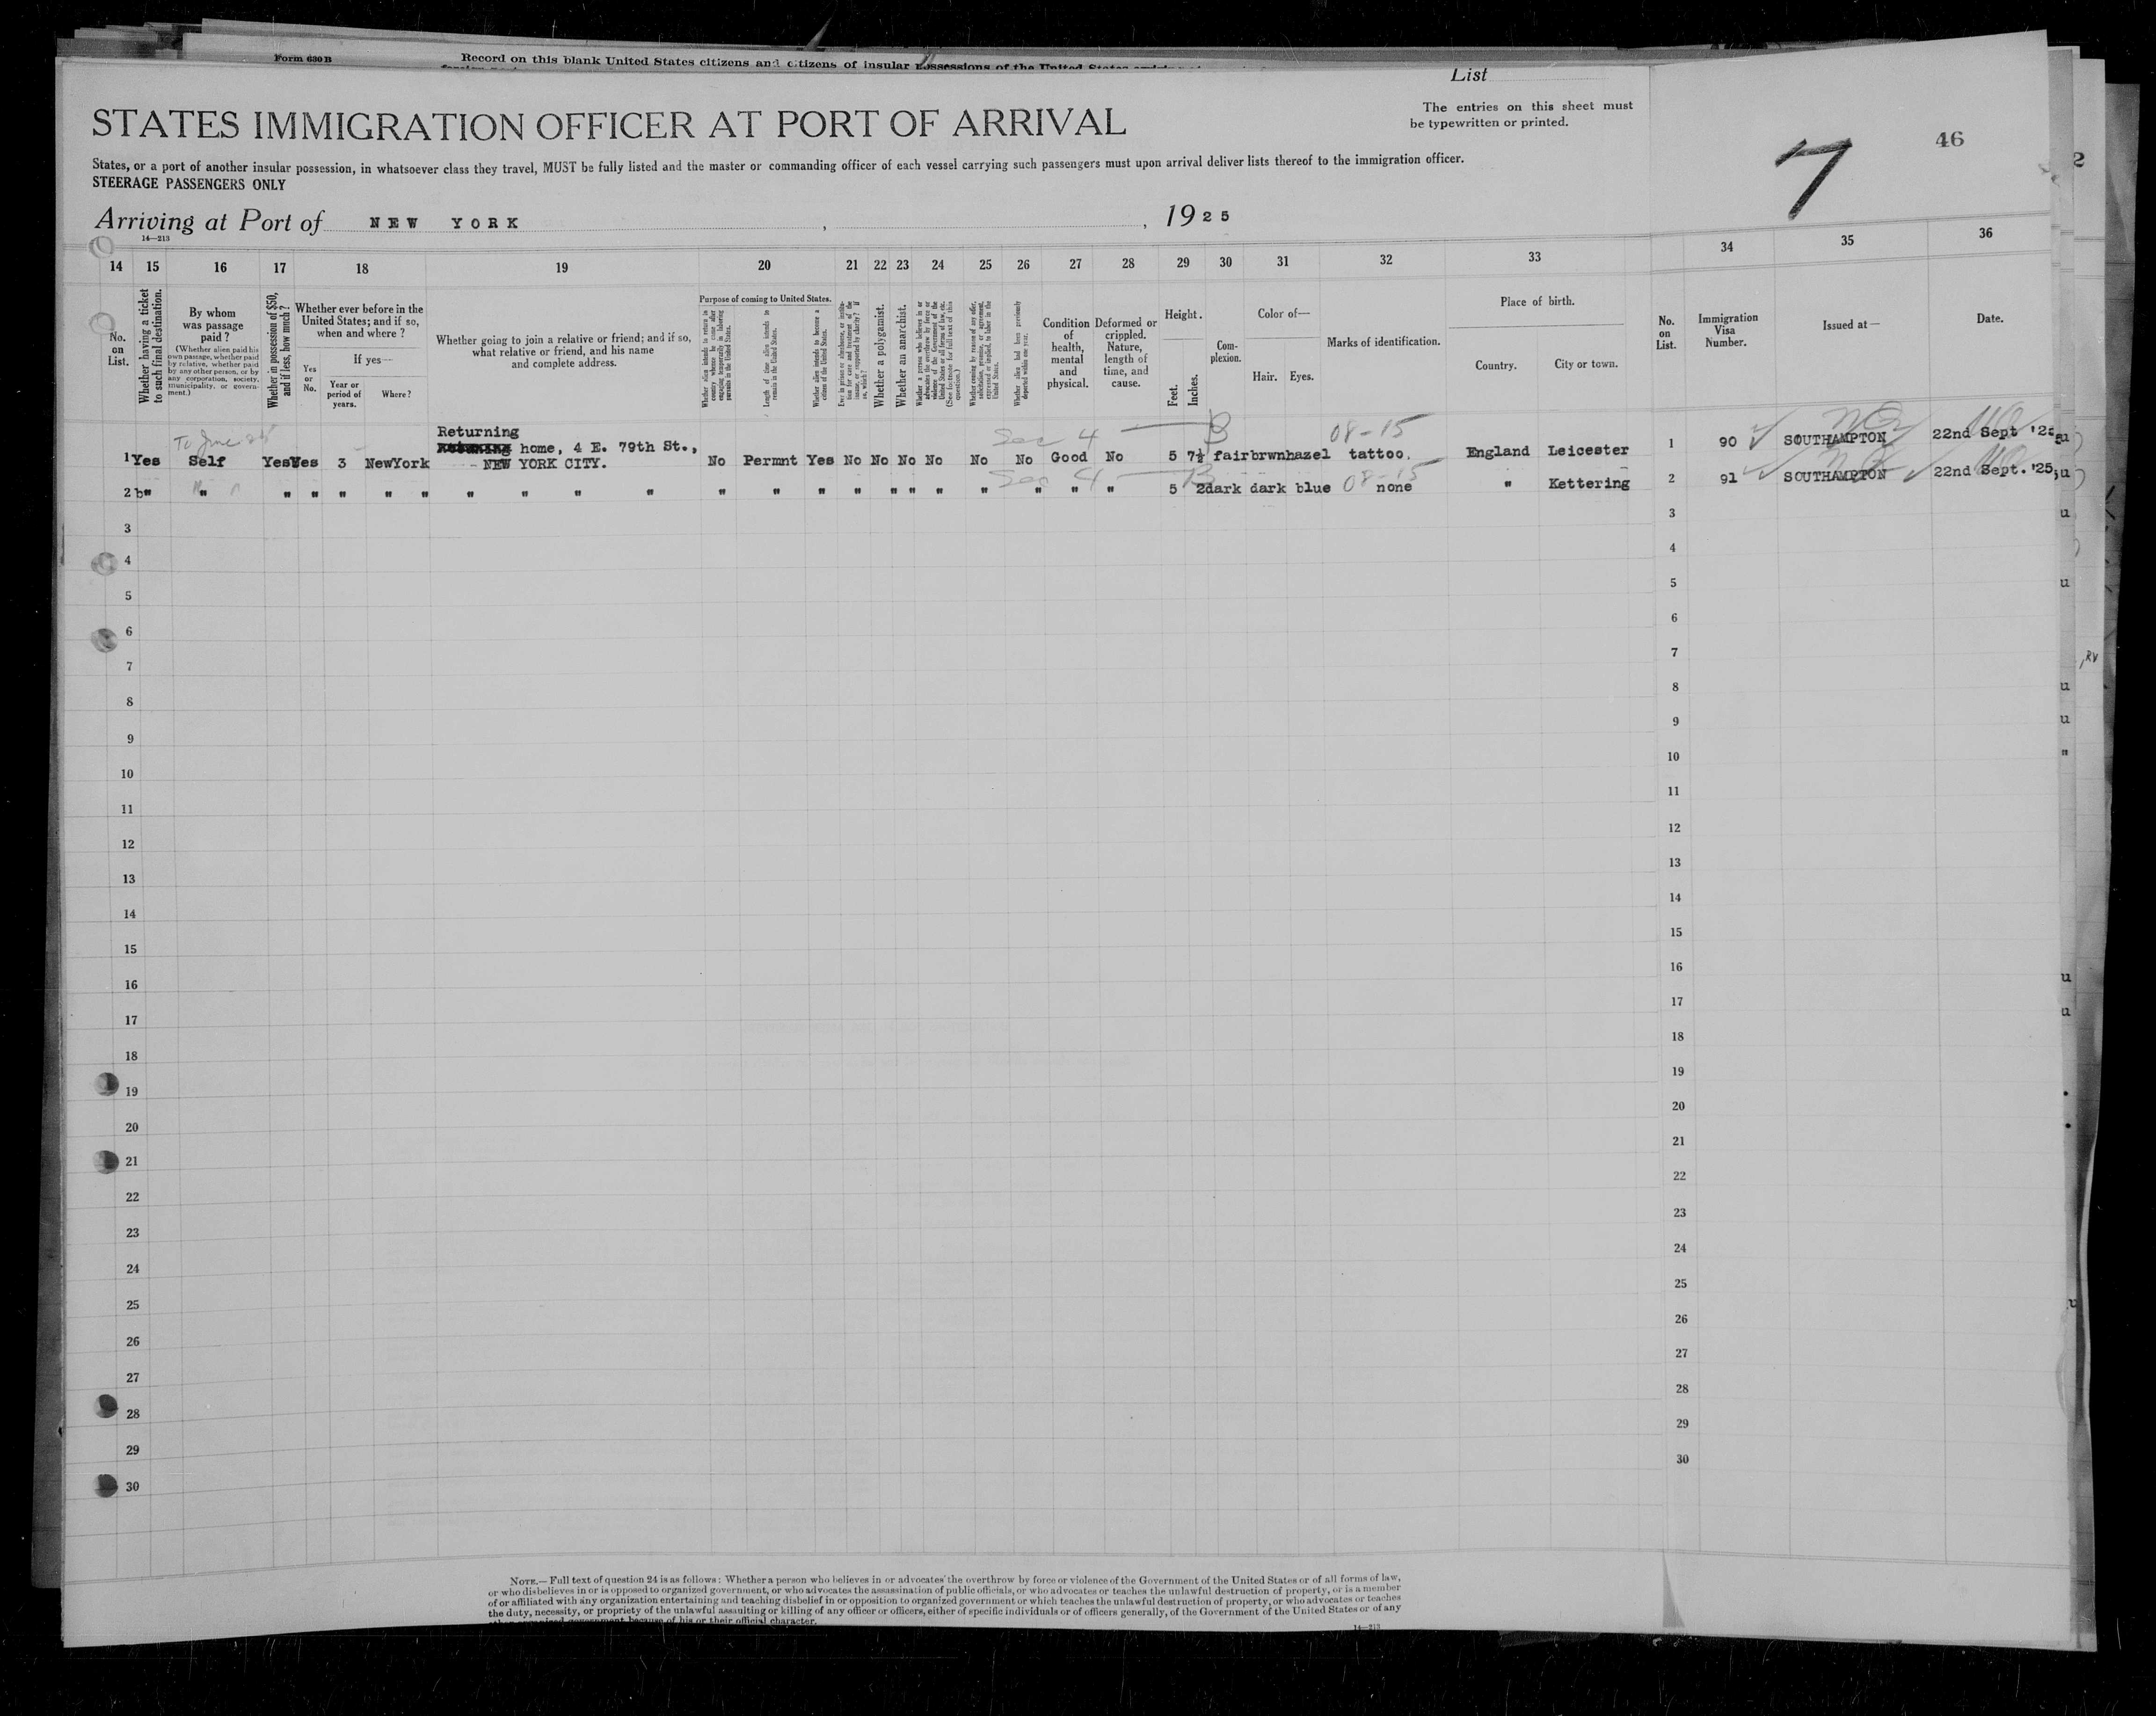 Form 630 B
Record on this blank United States citizens and citizens of insular possessions of the United States
List
The entries on this sheet must
be typewritten or printed.
STATES IMMIGRATION OFFICER AT PORT OF ARRIVAL
46
7
2
States, or a port of another insular possession, in whatsoever class they travel, MUST be fully listed and the master or commanding officer of each vessel carrying such passengers must upon arrival deliver lists thereof to the immigration officer.
STEERAGE PASSENGERS ONLY
Arriving at Port of NEW YORK , , 1925
14—213
14 15 16 17 18 19 20 21 22 23 24 25 26 27 28 29 30 31 32 33 34 35 36
No. on List.
Whether having a ticket to such final destination.
By whom was passage paid?
(Whether alien paid his own passage, whether paid by relative, whether paid by any other person, or by any corporation, society, municipality, or government.)
Whether in possession of $50, and if less, how much?
Whether ever before in the United States; and if so, when and where?
Yes or No.
If yes—
Year or period of years.
Where?
Whether going to join a relative or friend; and if so, what relative or friend, and his name and complete address.
Purpose of coming to United States.
Whether alien intends to return to country whence he came after engaging temporarily in laboring pursuits in the United States.
Length of time alien intends to remain in the United States.
Whether alien intends to become a citizen of the United States.
Ever in prison or almshouse, or institution for care and treatment of the insane, or supported by charity? If so, which?
Whether a polygamist.
Whether an anarchist.
Whether a person who believes in or advocates the overthrow by force or violence of the Government of the United States or all forms of law, etc. (See footnote for full text of this question.)
Whether coming by reason of any offer, solicitation, promise, or agreement, expressed or implied, to labor in the United States.
Whether alien had been previously deported within one year.
Condition of health, mental and physical.
Deformed or crippled. Nature, length of time, and cause.
Height.
Feet. Inches.
Complexion.
Color of—
Hair. Eyes.
Marks of identification.
Place of birth.
Country. City or town.
No. on List.
Immigration Visa Number.
Issued at—
Date.
Returning
Sec 4 B 08-15
1 Yes Self Yes Yes 3 NewYork home, 4 E. 79th St., NEW YORK CITY. No Permnt Yes No No No No No No Good No 5 7½ fair brwn hazel tattoo. England Leicester 1 90 SOUTHAMPTON 22nd Sept '25
Sec 4 B 08-15
2 b" " " " " " " " " " " " " " " " " " " " " " 5 2 dark dark blue none " Kettering 2 91 SOUTHAMPTON 22nd Sept. '25
3 3
4 4
5 5
6 6
7 7
8 8
9 9
10 10
11 11
12 12
13 13
14 14
15 15
16 16
17 17
18 18
19 19
20 20
21 21
22 22
23 23
24 24
25 25
26 26
27 27
28 28
29 29
30 30
NOTE.—Full text of question 24 is as follows: Whether a person who believes in or advocates the overthrow by force or violence of the Government of the United States or of all forms of law,
or who disbelieves in or is opposed to organized government, or who advocates the assassination of public officials, or who advocates or teaches the unlawful destruction of property, or is a member
of or affiliated with any organization entertaining and teaching disbelief in or opposition to organized government or which teaches the unlawful destruction of property, or who advocates or teaches
the duty, necessity, or propriety of the unlawful assaulting or killing of any officer or officers, either of specific individuals or of officers generally, of the Government of the United States or of any
other organized government because of his or their official character.
14—213